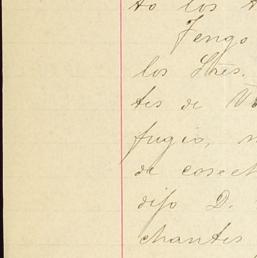 to los
Tengo
los Stres.
tes de V
fugio,
de cosech
dijo D.
chantes